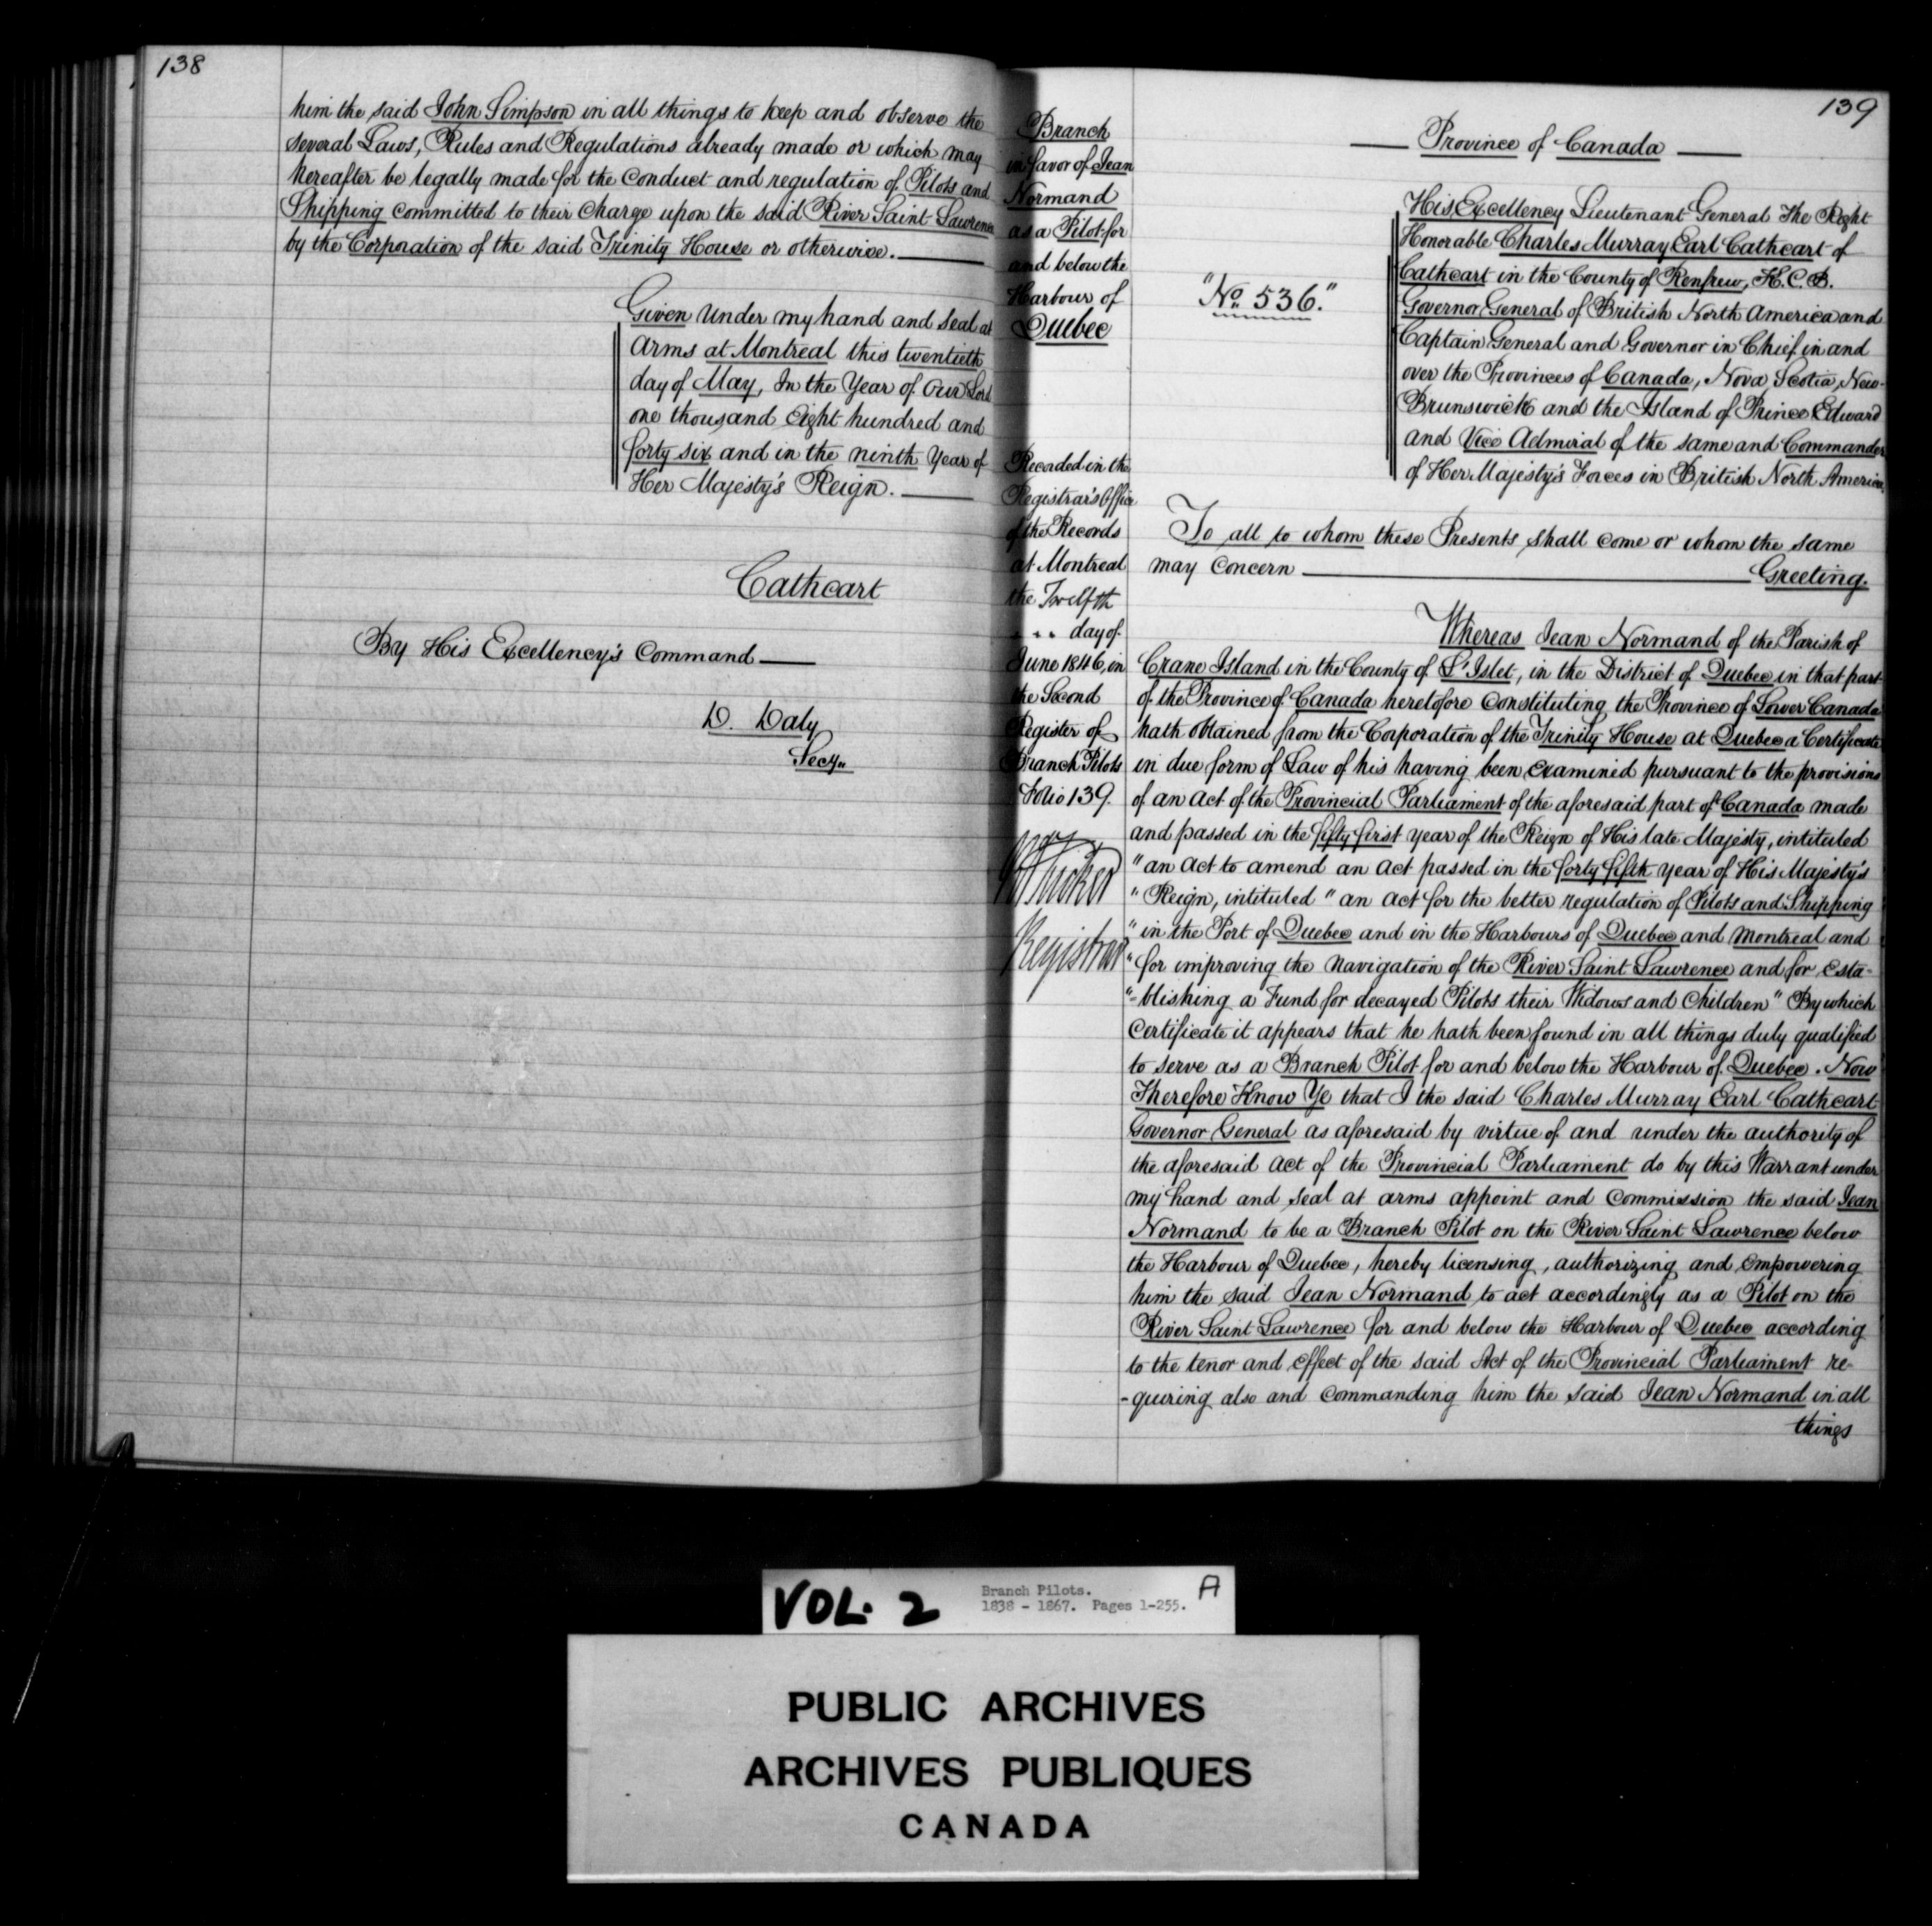 138
him the said John Simpson in all things to keep and observe the
several Laws, Rules and Regulations already made or which may
hereafter be legally made for the conduct and regulation of Pilots and
Shipping committed to their charge upon the said River Saint Lawrence
by the Corporation of the said Trinity House or otherwise.
Given under my hand and Seal at
Arms at Montreal this twentieth
day of May, In the Year of Our Lord
one thousand Eight hundred and
forty six and in the ninth Year of
Her Majesty's Reign.
Cathcart
By His Excellency's Command
D. Daly
Secy.
139
Branch
in favor of Jean
Normand
as a Pilot for
and below the
Harbour of
Quebec
Recorded in the
Registrar's Office
of the Records
at Montreal
the Twelfth
day of
June 1846, in
the Second
Register of
Branch Pilots
Folio 139.
Registrar
Province of Canada
"No. 536."
His Excellency Lieutenant General The Right
Honorable Charles Murray Earl Cathcart of
Cathcart in the County of Renfrew, K.C.B.
Governor General of British North America and
Captain General and Governor in Chief in and
over the Provinces of Canada, Nova Scotia, New-
Brunswick and the Island of Prince Edward
and Vice Admiral of the same and Commander
of Her Majesty's Forces in British North America
To all to whom these Presents shall come or whom the same
may concern Greeting.
Whereas Jean Normand of the Parish of
Crane Island in the County of L'Islet, in the District of Quebec in that part
of the Province of Canada heretofore constituting the Province of Lower Canada
hath obtained from the Corporation of the Trinity House at Quebec a Certificate
in due form of Law of his having been examined pursuant to the provisions
of an act of the Provincial Parliament of the aforesaid part of Canada made
and passed in the fifty first year of the Reign of His late Majesty, intituled
"an act to amend an act passed in the forty fifth year of His Majesty's
"Reign, intituled "an act for the better regulation of Pilots and Shipping
"in the Port of Quebec and in the Harbours of Quebec and Montreal and
"for improving the navigation of the River Saint Lawrence and for esta-
"-blishing a Fund for decayed Pilots their Widows and Children" By which
Certificate it appears that he hath been found in all things duly qualified
to serve as a Branch Pilot for and below the Harbour of Quebec. Now
Therefore Know Ye that I the said Charles Murray Earl Cathcart
Governor General as aforesaid by virtue of and under the authority of
the aforesaid act of the Provincial Parliament do by this Warrant under
my hand and seal at arms appoint and commission the said Jean
Normand to be a Branch Pilot on the River Saint Lawrence below
the Harbour of Quebec, hereby licensing, authorizing and empowering
him the said Jean Normand to act accordingly as a Pilot on the
River Saint Lawrence for and below the Harbour of Quebec according
to the tenor and effect of the said Act of the Provincial Parliament re-
-quiring also and commanding him the said Jean Normand in all
things
VOL. 2
Branch Pilots.
1838 - 1867. Pages 1-255.
A
PUBLIC ARCHIVES
ARCHIVES PUBLIQUES
CANADA